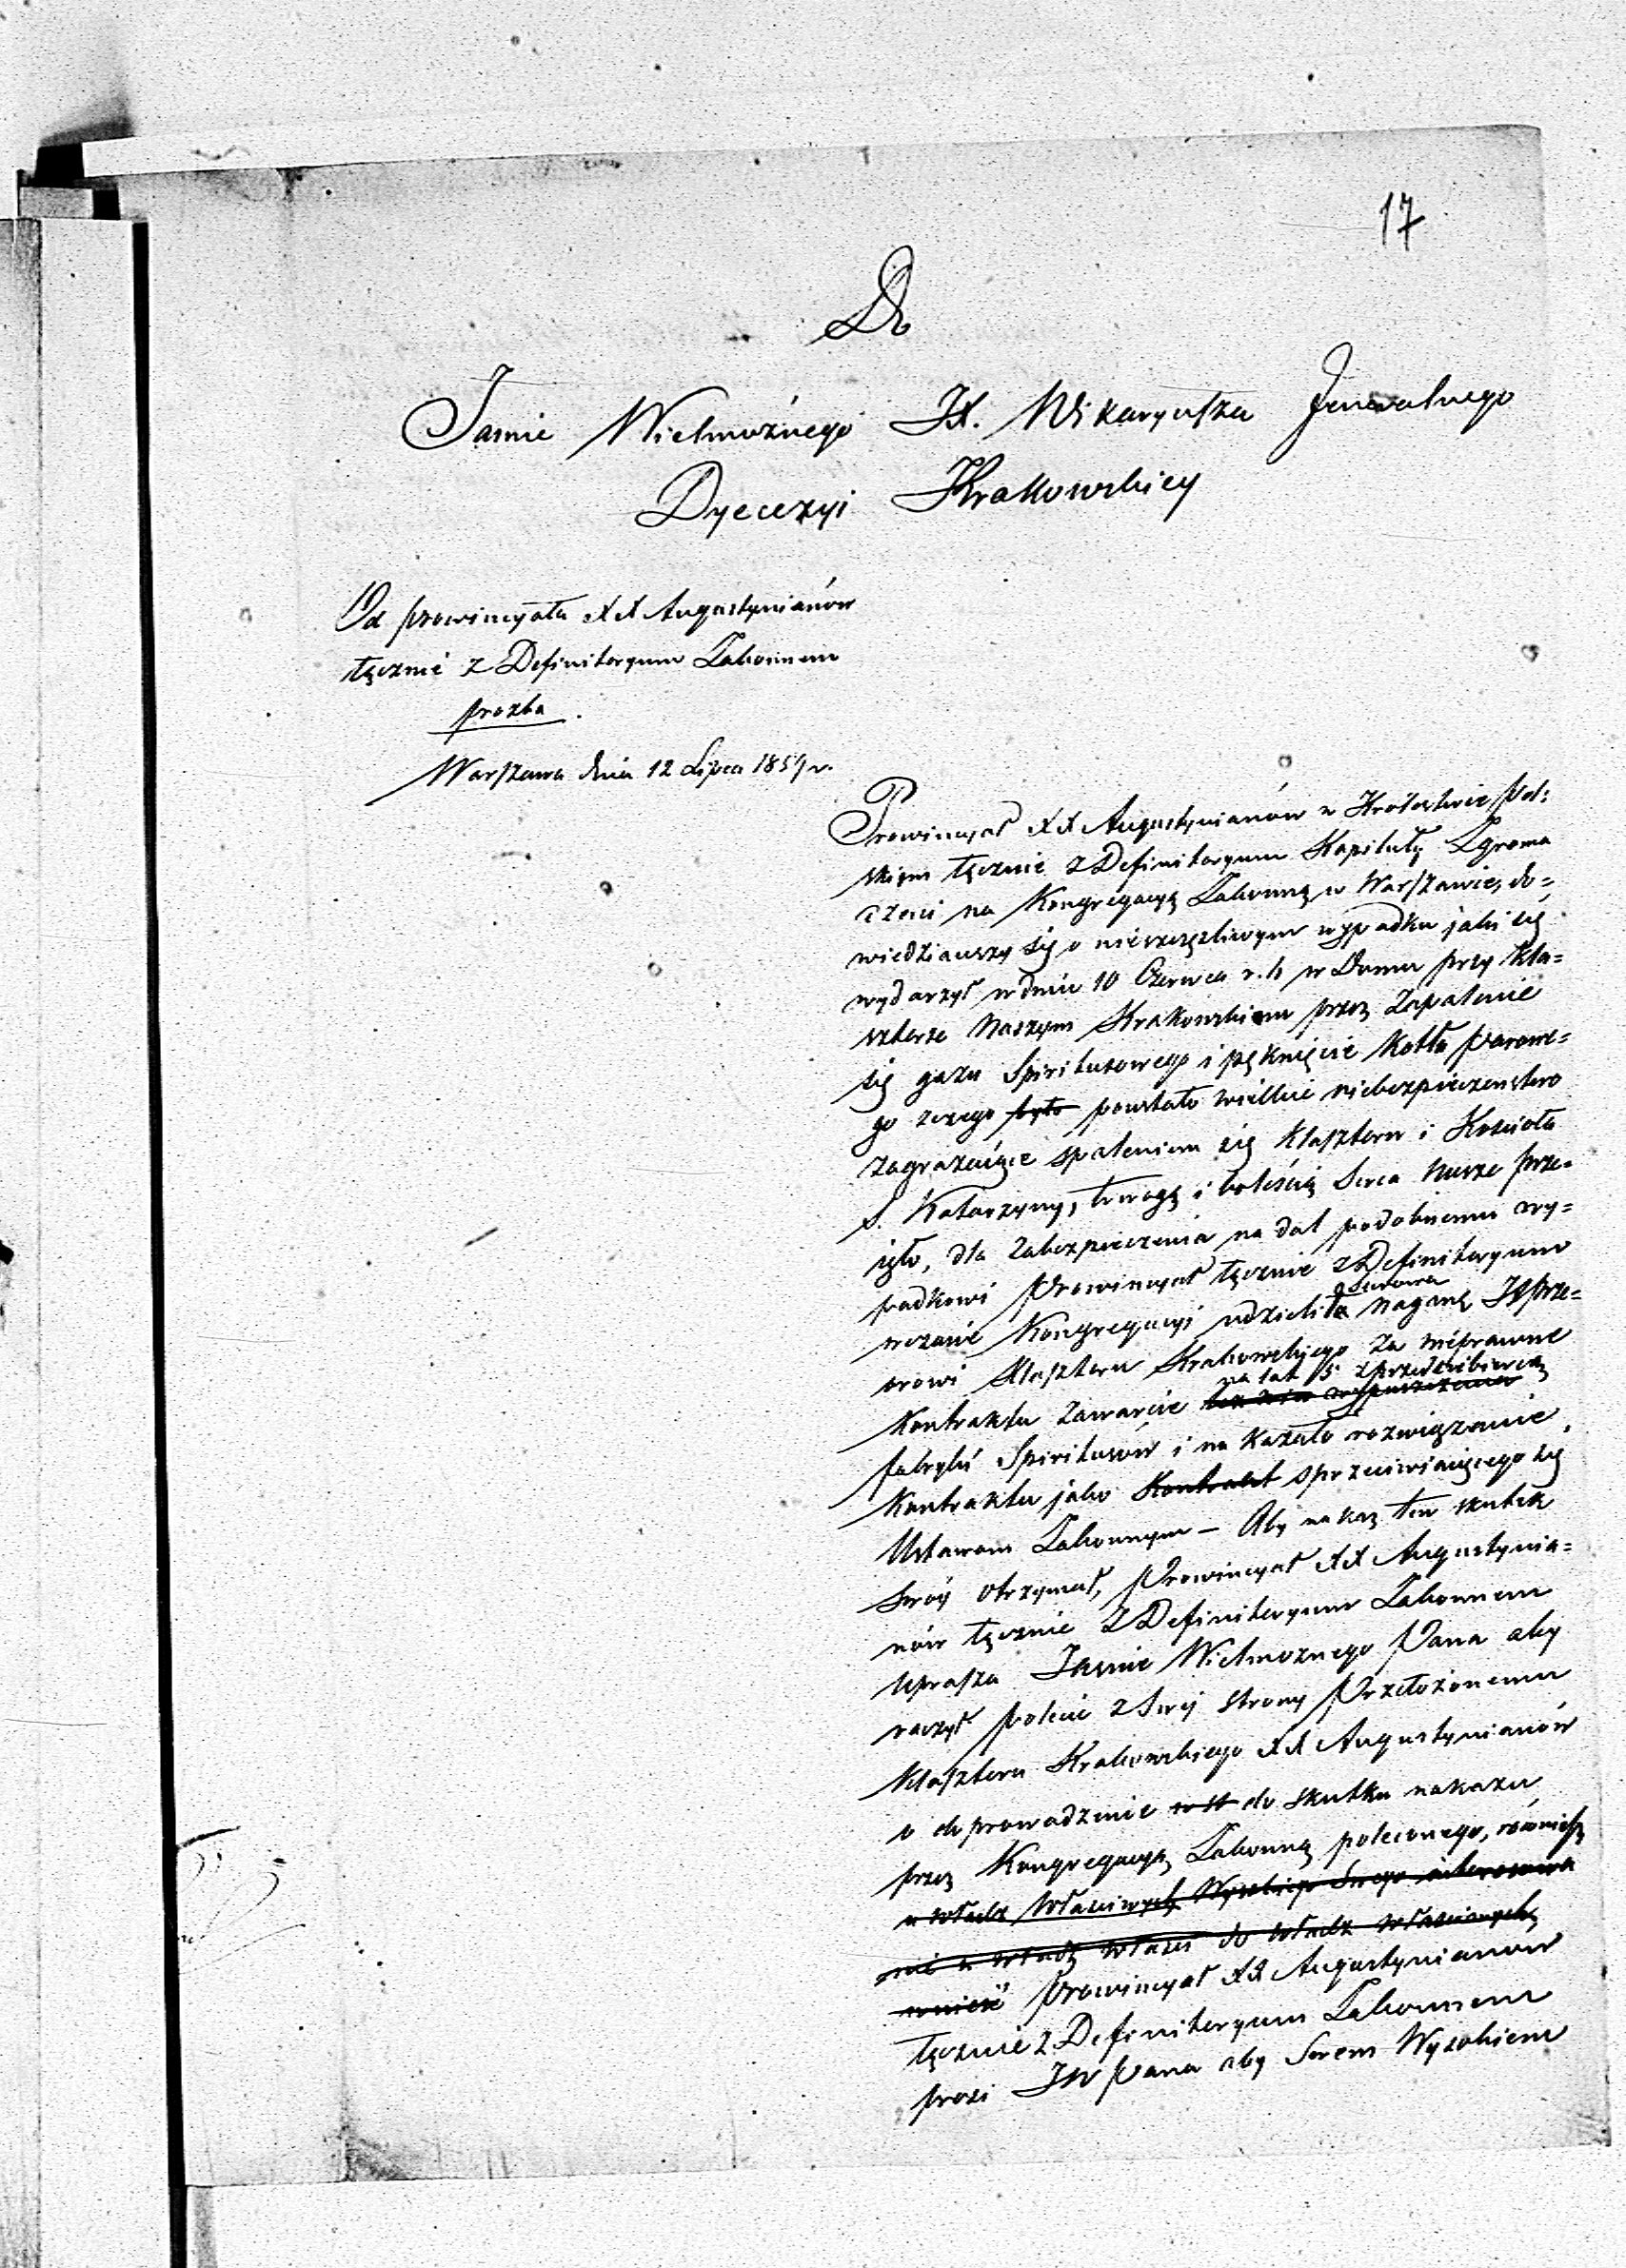 17
Do
Jaśnie Wielmożnego JX. Wikaryusza Jeneralnego
Dyecezyi Krakowskiey
Od prowincyała XX Augustynianów
łącznie z Definitoryum Zakonnem
prozba.
Warszawa dnia 12 Lipca 185 r.
Prowincyał XX Augustynianów w Królestwie Pol:
skiem łącznie z Definitoryum Kapituły Zgroma
dzeni na Kongregacyą Zakonną w Warszawie, do=
wiedziawszy się o nieszczęzliwym wypadku jaki się
wydarzył w dniu 10 Czerwca r. b w Domu przy Kla=
sztorze Naszym Krakowskiem przez Zapalenie
się gazu Spiritusowego i pęknięcie Kotła Parowe=
go zczego było powstało wielkie niebezpieczenstwo
zagrażaiące spaleniem się Klasztoru i Kościoła
S. Katarzyny, trwogą i boleścią Serca Nasze prze=
ięło, dla Zabezpieczenia na dal podobnemu wy=
padkowi Prowincyał łącznie z Definitoryum
wczasie Kongregacyi udzieliła surowa naganę JXprze=
orowi Klasztoru Krakowskiego za nieprawne
na lat 5 z przedsiebiercą
Kontraktu Zawarcie wypuszczenia
fabryki Spiritusów i na kazało rozwiązanie
Kontraktu jako Kontrakt sprzeciwiaiącego się
Ustawom Zakonnym – Aby nakaz ten skutek
swóy otrzymał, Prowincyał XX Augustynia=
nów łącznie z Definitoryum Zakonnem
uprasza Jaśnie Wielmoznego Pana aby
raczył polecić z Swej strony Przełożonemu
Klasztoru Krakowskiego XX Augustynianów
o doprowadzenie do skutku nakazu
przez Kongregacyą Zakonną poleconego, równiesz
u władz Właściwych Wysokiego Swego
nie u władz do władz właściwych
wnieść Prowincyał XX Augustynianów
łącznie z Definitoryum Zakonnem
prosi JW Pana aby Swem Wysokiem